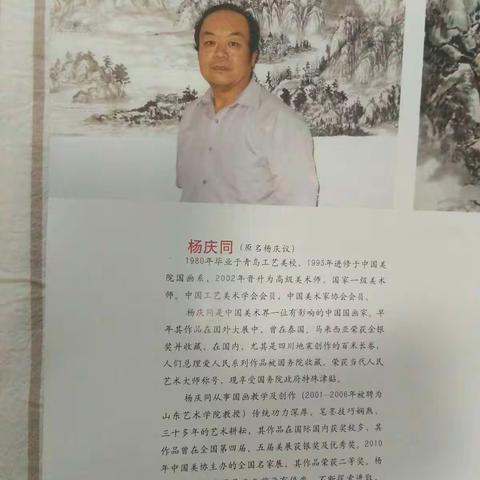 杨庆同（原名杨庆议）
1980年毕业于青岛工艺美校，1993年进修于中国美
院国画系，2002年晋升为高级美术师，国家一级美术
师。中国工艺美术学会会员，中国美术家协会会员。
杨庆同是中国美术界一位有影响的中国国画家。早
年其作品在国外大展中，曾在泰国、马来西亚荣获金银
奖并收藏，在国内，尤其是四川地震创作的百米长卷，
人们总理爱人民系列作品被国务院收藏，荣获当代人民
艺术大师称号，现享受国务院政府特殊津贴。
杨庆同从事国画教学及创作（2001-2006年被聘为
山东艺术学院教授）传统功力深厚，笔墨技巧娴熟，
三十多年的艺术耕耘，其作品在国际国内获奖较多，其
作品曾在全国第四届、五届美展获银奖及优秀奖。2010
年中国美协主办的全国名家展，其作品荣获二等奖。杨
不断探索进取，